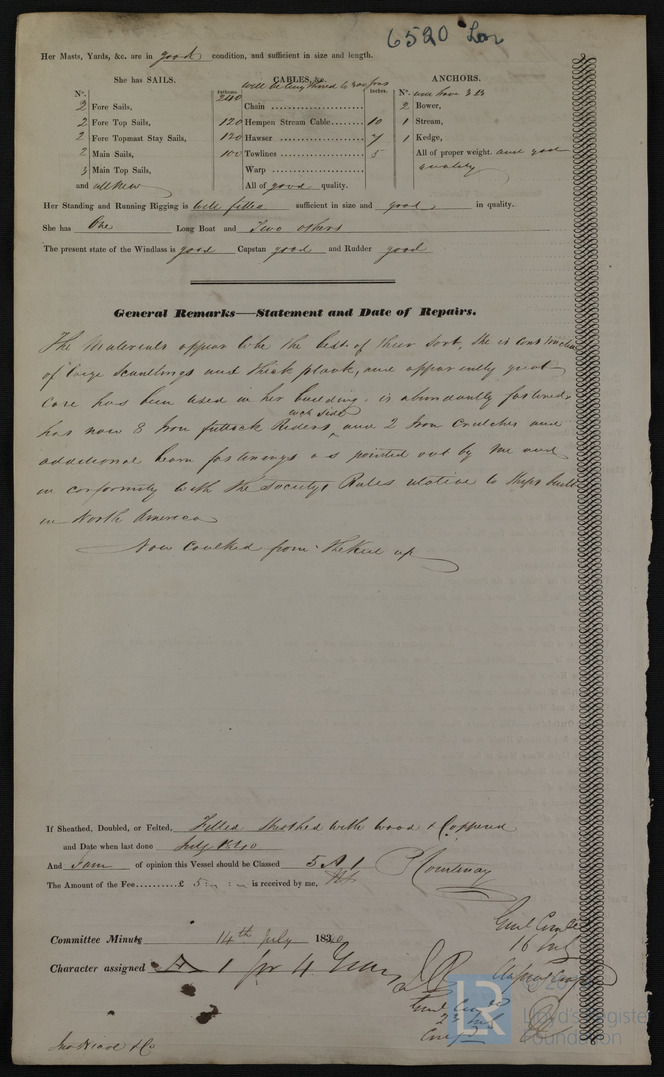 6520 Lon
Her Masts, Yards, &c. are in good condition, and sufficient in size and length.
She has SAILS.
CABLES, &c.
ANCHORS.
N°.
will be lengthened to 300 fms
Fathoms.
Inches.
N°. will have 3 B
240
2 Fore Sails,
Chain
2 Bower,
2 Fore Top Sails,
120 Hempen Stream Cable 10
1 Stream,
2 Fore Topmast Stay Sails,
120 Hawser 7
1 Kedge,
2 Main Sails,
100 Towlines 5
All of proper weight. and good
3 Main Top Sails,
Warp
quality
and all New
All of good quality.
Her Standing and Running Rigging is well fitted sufficient in size and good in quality.
She has One Long Boat and Two others
The present state of the Windlass is good Capstan good and Rudder good
General Remarks—Statement and Date of Repairs.
The Materials appear to be the best of their sort, She is constructed
of large Scantlings and thick plank, and apparently great
care has been used in her building. is abundantly fastened.
each side
has now 8 Iron futtock Riders and 2 Iron Crutches and
additional beam fastenings as pointed out by me and
in conformity with the Societys Rules relative to Ships built
in North America
Now Caulked from the Keel up
If Sheathed, Doubled, or Felted, Felted Sheathed with wood & Coppered
and Date when last done July 1840
And I am of opinion this Vessel should be Classed 5 A 1 P Courtenay
The Amount of the Fee £ 5 : - : - is received by me,
Committee Minute 14th July 1840
Character assigned A 1 for 4 Years
16 July
23
LR
Lloyd's Register
Foundation
& Co